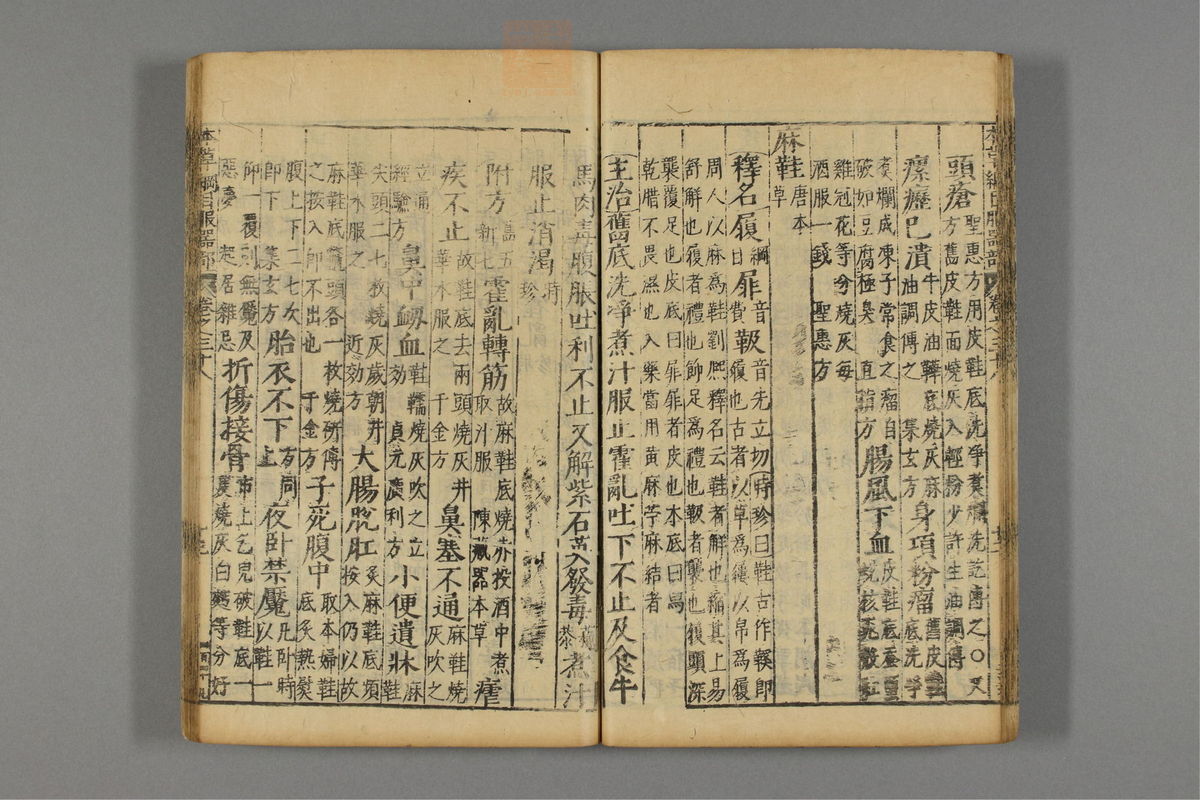 頭瘡聖惠方用皮鞋底洗淨煮爛洗訖傅之〇又
方舊皮鞋面燒灰入輕粉少許生油調傅
瘰癧已潰牛皮油鞾底燒灰麻
油調傅之 集玄方身項粉瘤舊皮鞋底洗淨
煮爛成凍子常食之瘤自
破如豆腐極臭 直指方腸風下血皮鞋底
雞冠花等分燒灰每
酒服一錢 聖惠方
麻鞋唐本草
釋名履綱目扉音費靸音先立切時珍曰鞋古作鞵即
履也古者以草為屨以帛為履
周人以麻為鞋劉熙釋名云鞋者解也縮其上易
舒解也履者禮也飾足為禮也靸者襲也履頭深
襲覆足也皮底曰扉扉者皮也木底曰舄
乾腊不畏濕也入藥當用黄麻苧麻結者
主治舊底洗淨煮汁服止霍亂吐下不止及食牛
馬肉毒腹脹吐利不止又解紫石英發毒蘇恭煮汁
服止消渴時珍
附方舊五新七霍亂轉筋故麻鞋底燒赤投酒中煮
取汁服 陳藏器本草瘧
疾不止故鞋底去兩頭燒灰井
華水服之 千金方鼻塞不通麻鞋燒
灰吹之
立通
經驗方鼻中衂血鞋䩺燒灰吹之立
効 貞元廣利方小便遺牀麻鞋
尖頭二七枚燒灰歲朝井
華水服之 近効方大腸脫肛炙麻鞋底頻
按入仍以故
麻鞋底頭各一枚燒研傅
之按入即不出也 千金方子死腹中取本婦鞋
底炙熱熨
腹上下二七次
即下 集玄方胎衣不下方同上夜卧禁魘凡卧時
以鞋一
仰一覆則無魘及
惡夢 起居雜忌折傷接骨市上乞兒破鞋底一
隻燒灰白麪等分好
本草綱目服器部 卷之三十八